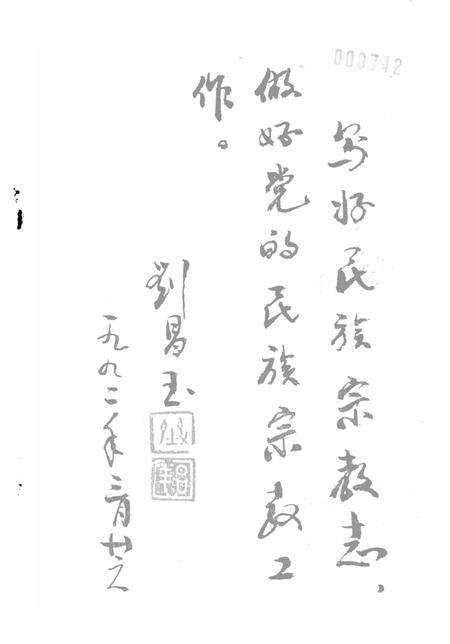 000742
写好民族宗教志，
做好党的民族宗教工
作。
劉昌玉
一九九二年三月廿